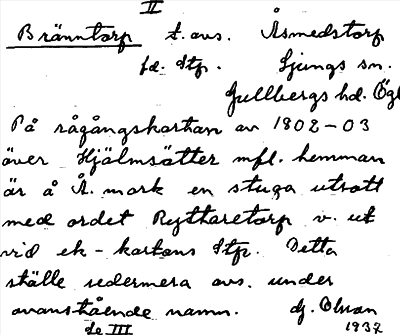 II
Bränntorp t. avs. Åsmedstorp
fd. Stp. Ljungs sn.
Gullbergs hd. Ögl
På rågångskartan av 1802-03
över Hjälmsätter mfl. hemman
är å Å. mark en stuga utsatt
med ordet Ryttaretorp v. ut
vid ek-kartans Stp. Detta
ställe sedermera avs. under
ovanstående namn. Hj. Olsson
se III 1937